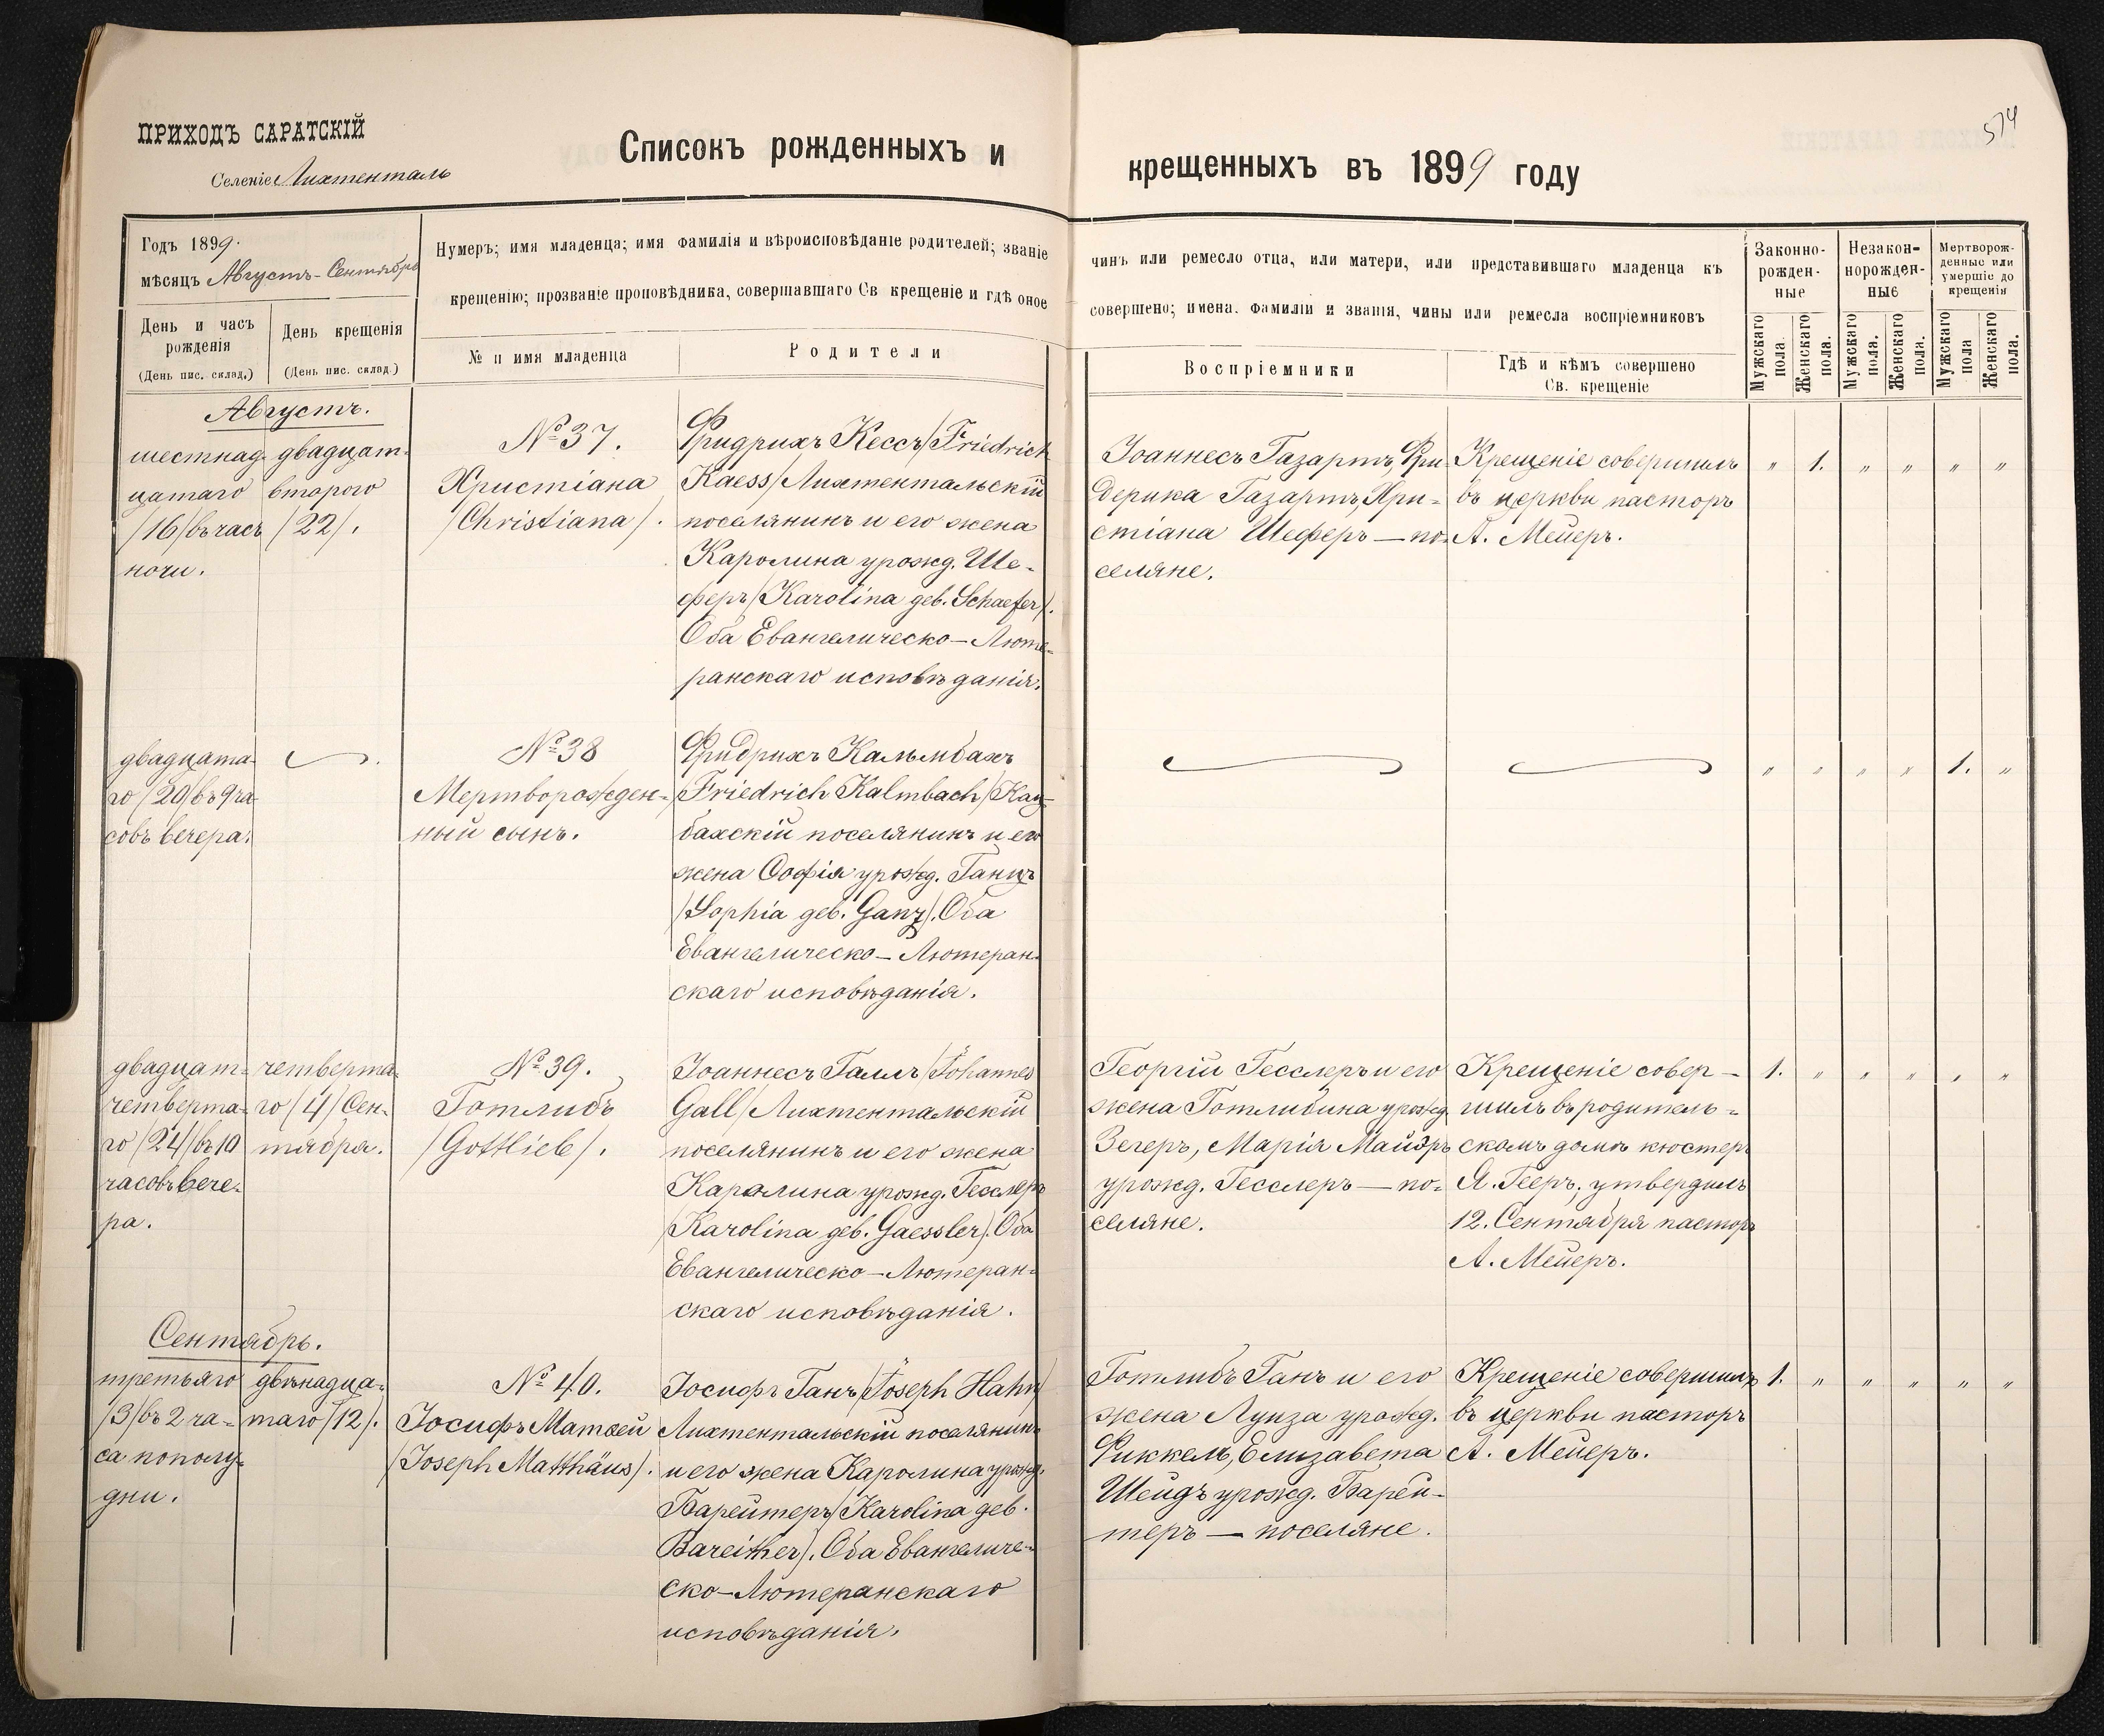 574
ПРИХОДЪ САРАТСКІЙ
Селеніе Лихтенталь
Списокъ рожденныхъ и крещенныхъ въ 1899 году
Годъ 1899.
мѣсяцъ Августъ - Сентябрь
День и часъ рожденія
(День пис. склад.)
День крещенія
(День пис. склад.)
Нумеръ; имя младенца; имя фамилія и вѣроисповѣданіе родителей; званіе
чинъ или ремесло отца, или матери, или представившаго младенца къ
крещенію; прозваніе проповѣдника, совершавшаго Св крещеніе и гдѣ оное
совершено; имена. фамиліи и званія, чины или ремесла воспріемниковъ
№ и имя младенца
Родители
Воспріемники
Гдѣ и кѣмъ совершено
Св. крещеніе
Законно-
рожден-
ные
Незакон-
норожден-
ные
Мертворож-
денные или
умершіе до
крещенія
Мужскаго пола.
Женскаго пола.
Мужскаго пола.
Женскаго пола.
Мужскаго пола
Женскаго пола.
Августъ.
шестнад-
цатаго
/16/ въ часъ
ночи.
двадцат-
втораго
/22/.
№ 37.
Христіана
/Christiana/.
Фридрихъ Кессъ /Friedrich
Kaess/ Лихтентальскій
поселянинъ и его жена
Каролина урожд. Ше-
феръ /Karolina geb. Schaefer/.
Оба Евангелическо-Люте-
ранскаго исповѣданія.
Іоаннесъ Газартъ, Фри-
дерика Газартъ, Хри-
стіана Шеферъ — по-
селяне.
Крещеніе совершилъ
въ церкви пасторъ
А. Мейеръ.
" 1. " " " "
двадцата-
го /20/ въ 9 ча-
совъ вечера.
№ 38
Мертворожден-
ный сынъ.
Фридрихъ Кальмбахъ
/Friedrich Kalmbach/ Кау-
бахскій поселянинъ и его
жена Софія урожд. Ганцъ
/Sophia geb. Ganz/. Оба
Евангелическо-Лютеран-
скаго исповѣданія.
" " " " 1. "
двадцат-
четверта-
го /24/ въ 10
часовъ вече-
ра.
четверта-
го /4/ Сен-
тября.
№ 39.
Готлибъ
/Gottlieb/.
Іоаннесъ Галлъ /Johannes
Gall/ Лихтентальскій
поселянинъ и его жена
Каролина урожд. Гесслеръ
/Karolina geb. Gaessler/. Оба
Евангелическо-Лютеран-
скаго исповѣданія.
Георгій Гесслеръ и его
жена Готлибина урожд.
Зегеръ, Марія Майэръ
урожд. Гесслеръ — по-
селяне.
Крещеніе совер-
шилъ въ родитель-
скомъ домѣ кюстеръ
Я. Гееръ; утвердилъ
12. Сентября пасторъ
А. Мейеръ.
1. " " " " "
Сентябрь.
третьяго
/3/ въ 2 ча-
са пополу-
дни.
двѣнадца-
таго /12/.
№ 40.
Іосифъ Матѳей
/Joseph Matthäus/.
Іосифъ Ганъ /Joseph Hahn/
Лихтентальскій поселянинъ
и его жена Каролина урожд.
Барейтеръ /Karolina geb.
Bareither/. Оба Евангеличе-
ско-Лютеранскаго
исповѣданія.
Готлибъ Ганъ и его
жена Луиза урожд.
Фиккель, Елизавета
Шейдъ урожд. Барей-
теръ — поселяне.
Крещеніе совершилъ
въ церкви пасторъ
А. Мейеръ.
1. " " " " "